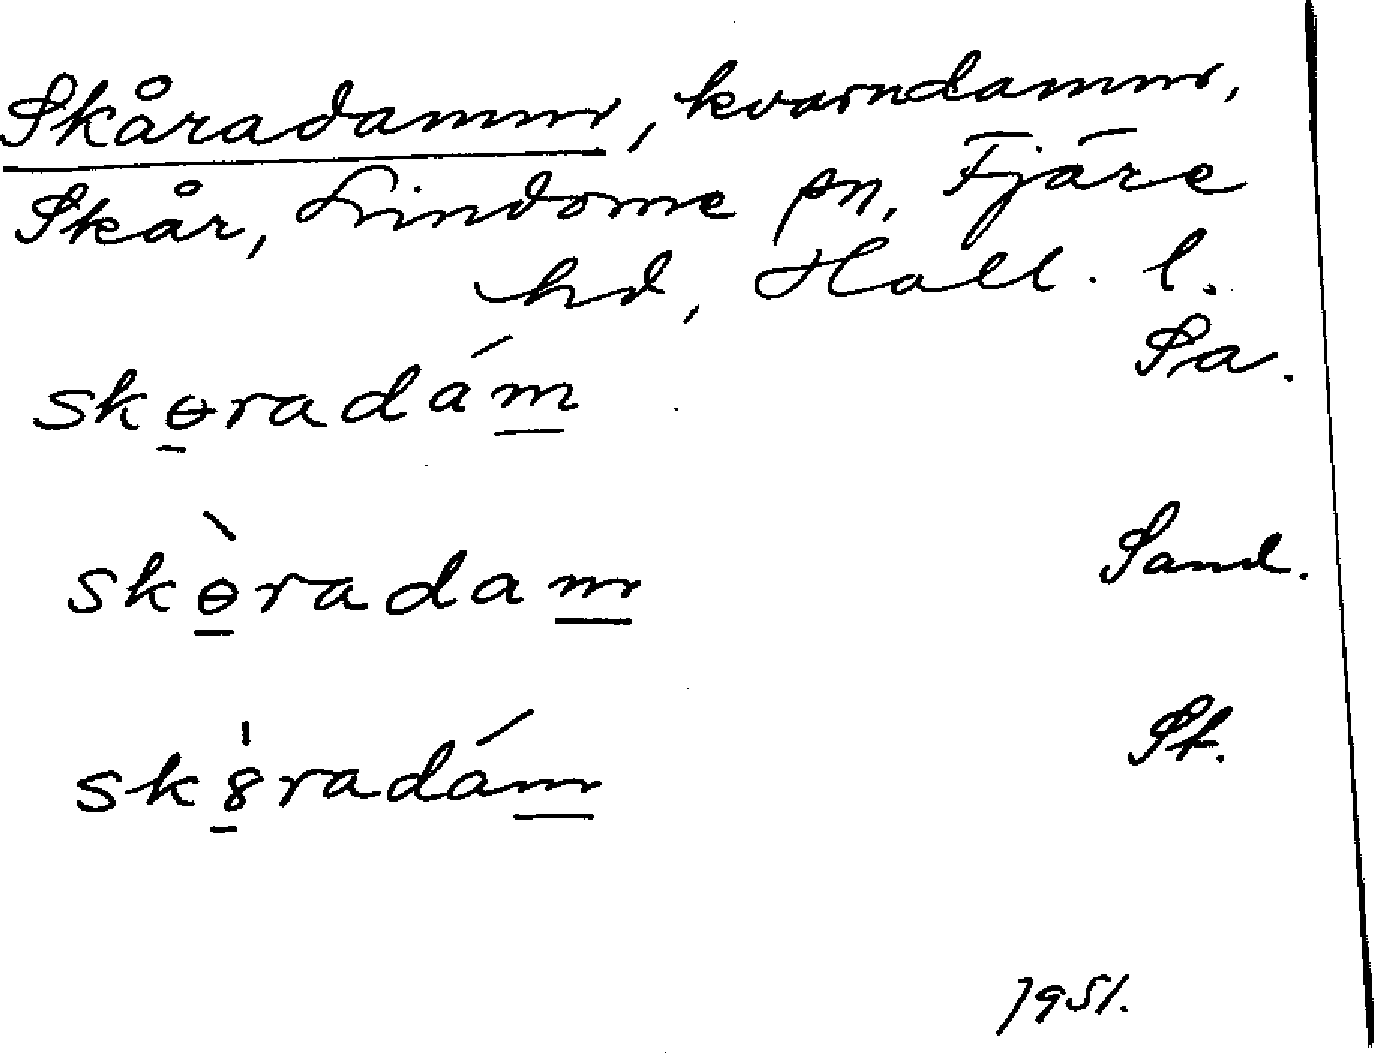 Skåradamm, kvarndamm,
Skår, Lindome sn, Fjäre
hd, Hall. l.
skɵ̱radám̱ Sa.
skɵ̱̀radam̱ Sand.
sk8̱̍radám̱ St.
1951.